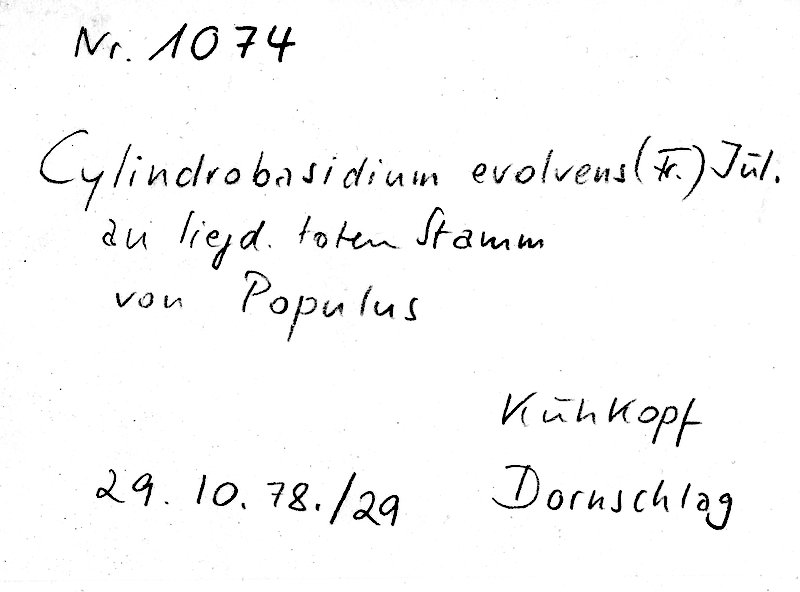 Nr. 1074
Cylindrobasidium evolvens (Fr.) Jül.
an liegd. toten Stamm
von Populus
Kühkopf
29. 10. 78./29 Dornschlag